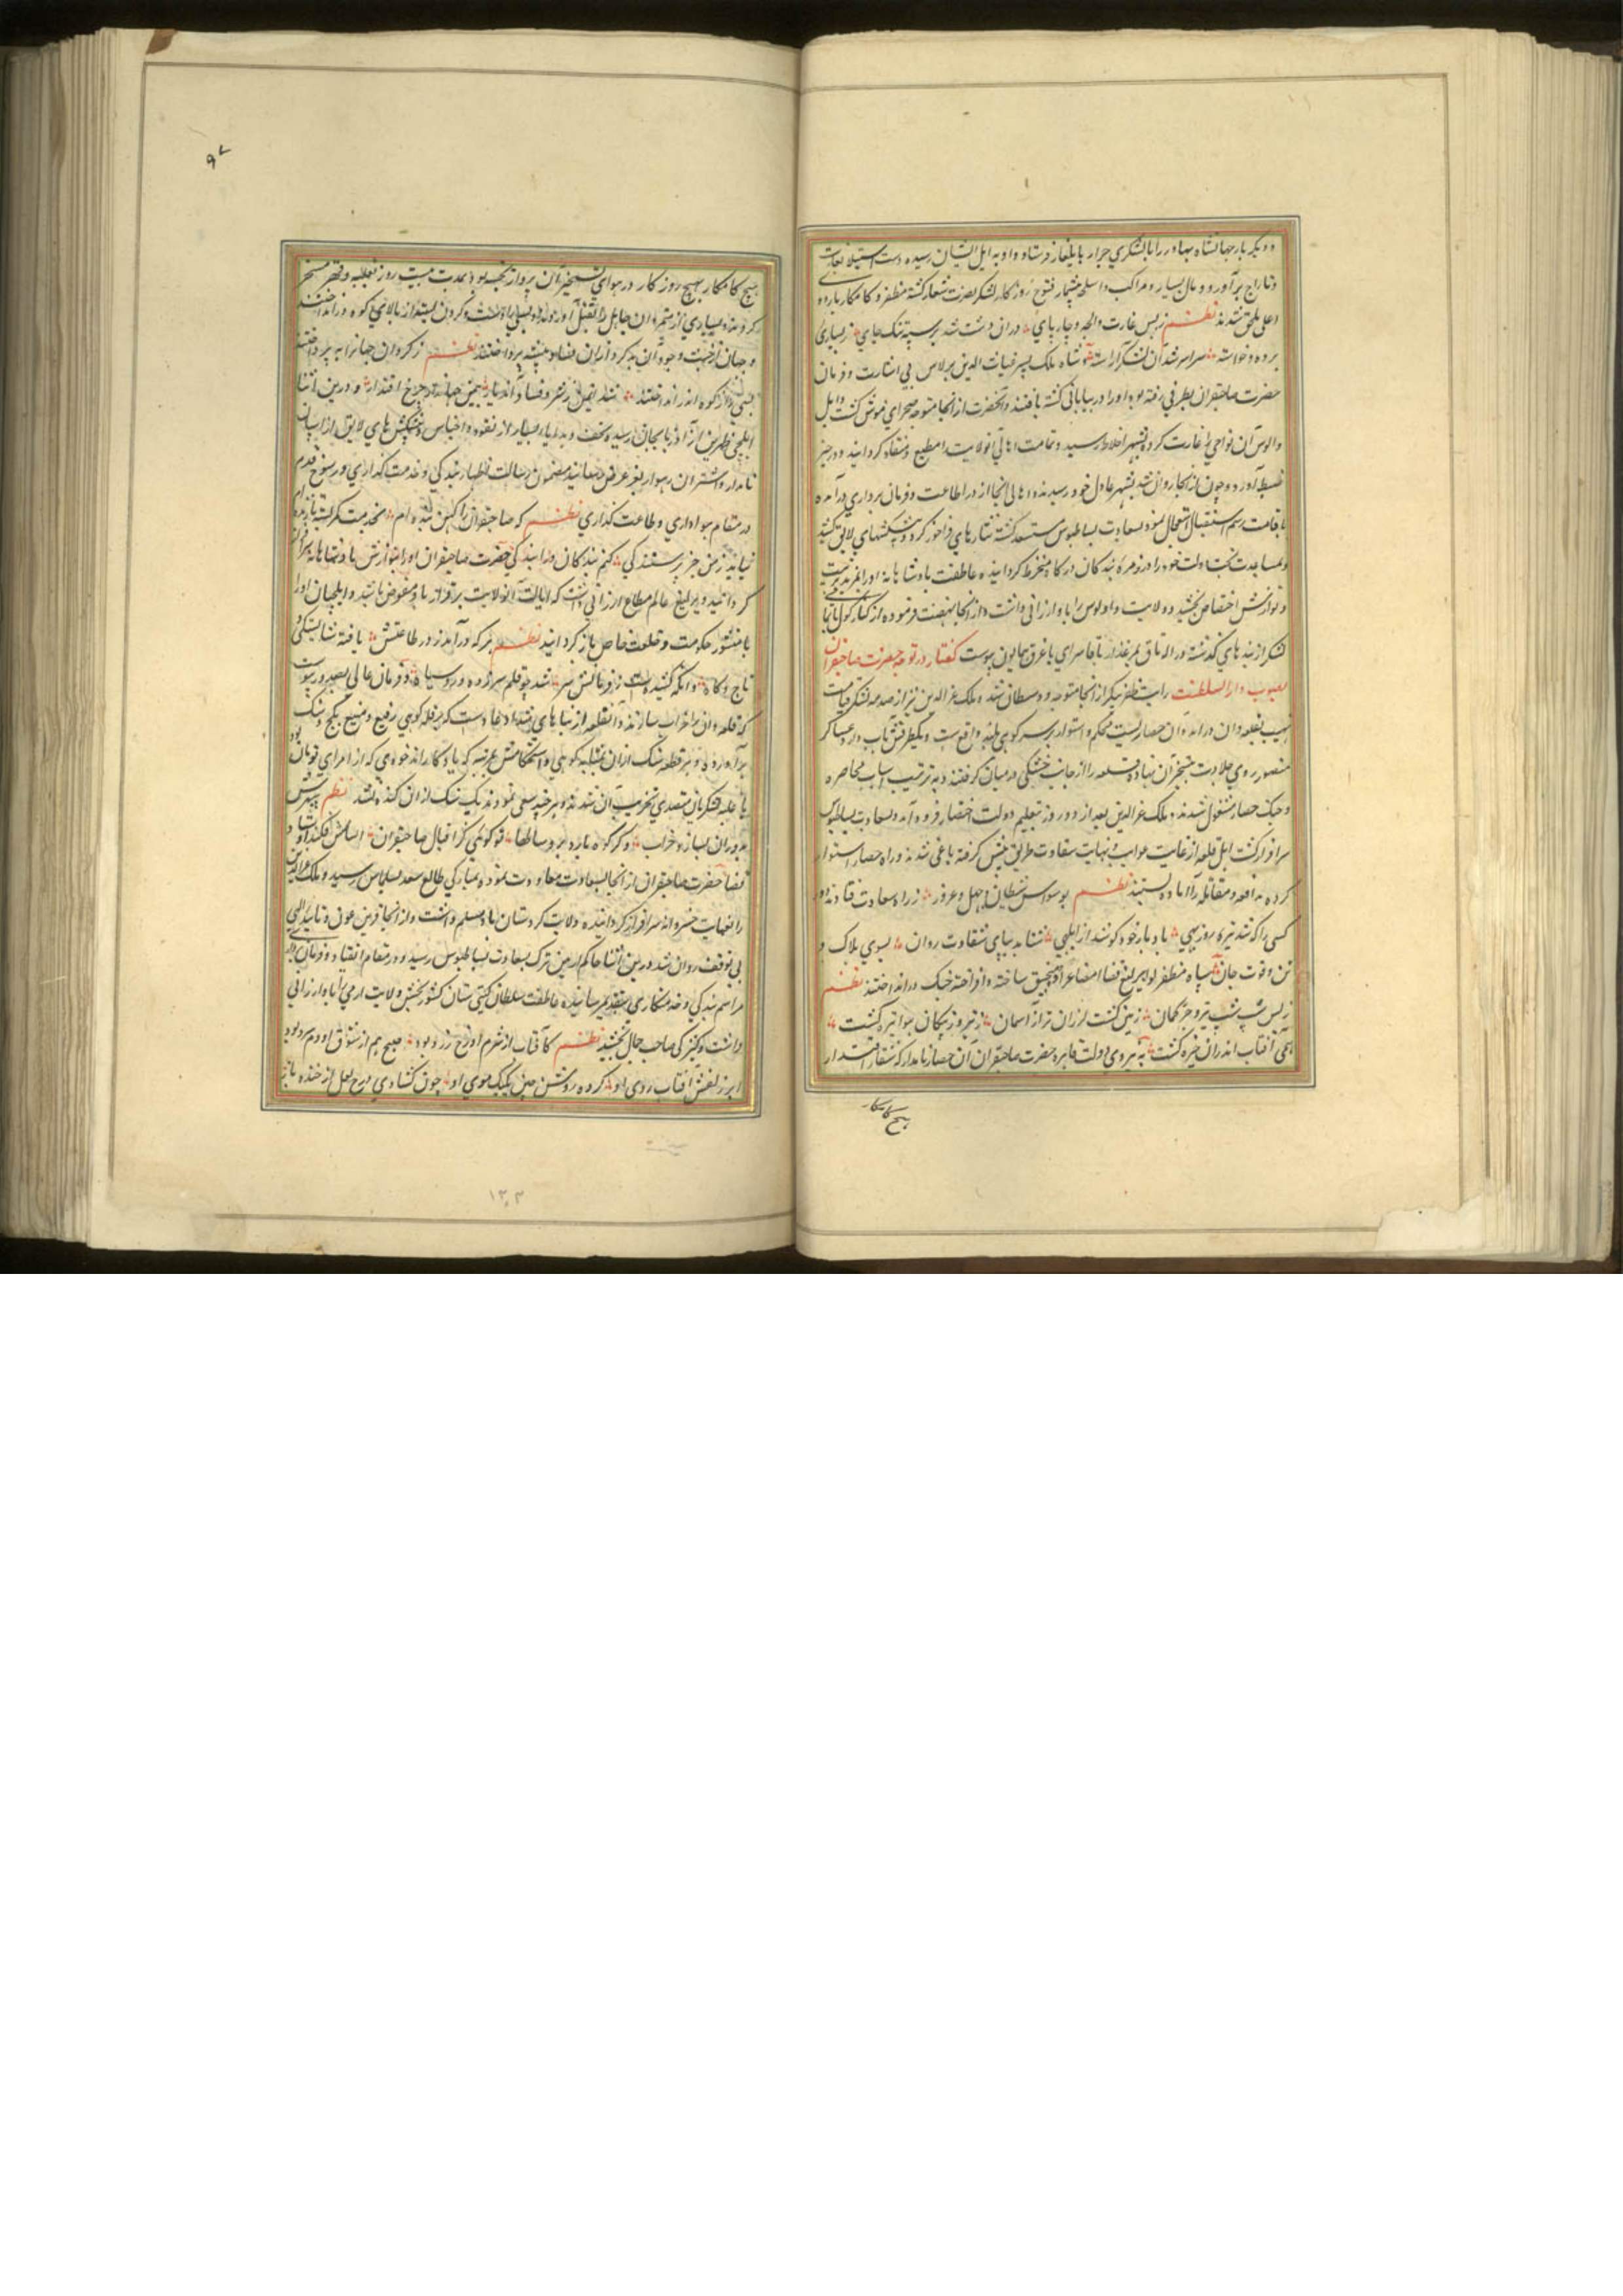 و دیکر بار جهانشاه بهادر را با لشکری جرار بایلغار فرستاد و او به ایل ایشان رسیده دست استیلا بغارت
و تاراج برآورد و مال بسیار و مراکب و اسلحه بیشمار فتوح روزکار لشکر نصرت شعار کشته مظفر و کامکار باردوی
اعلی ملحق شدند نظم ز بس غارت و چارپای دران دشت شد بر سپه تنک جای ز بسیاری
برده و خواسته سراسر شد آن لشکر آراسته و شاه ملک پسر غیاث الدین برلاس بی اشارت و فرمان
حضرت صاحبقران بطرفی رفته بود او را در بیابانی کشته یافتند و آنحضرت از انجا متوجه صحرای موش کشت و ایل
و الوس آن نواحی را غارت کرده بشهر اخلاط رسید و تمامت اهالی آنولایت را مطیع و منقاد کردانید و در حیز
ضبط آورد و چون از انجا روان شد بشهر عادل جوز رسیدند و اهالی انجا از در اطاعت و فرمان برداری درآمده
باقامت رسم استقبال استعجال نمود بسعادت بساطبوس مستسعد کشته نثارهای فراخور کرد و پیشکشهای لایق کشید
و بمساعدت بخت و دولت خود را در زمره بندکان درکاه منخرط کردانیده عاطفت پادشاهانه او را بمزید تربیت
و نوازش اختصاص بخشید و ولایت و اولوس را باو ارزانی داشت و از انجا نهضت فرموده از کنار کول تمامی
لشکر از بندهای کذشته در اله تاق بمرغزار باقاسرای باغرق همایون پیوست کفتار در توجه حضرت صاحبقران
بصوب دار السلطنت رایت ظفرپیکر از انجا متوجه و وسطان شد و ملک عز الدین نیز از صدمه لشکر قیامت
نهیب بقلعه وان درآمد و آن حصاریست محکم و استوار بر سر کوهی بلند واقع است و یکطرفش آب دارد عساکر
منصور روی جلادت بتسخیر آن نهاده قلعه را از جانب خشکی در میان کرفتند و به ترتیب اسباب محاصره
و جنک حصار مشغول شدند ملک عز الدین بعد از دو روز بتعلیم دولت اختصار فرود آمد و بسعادت بساطبوس
سرافراز کشت اهل قلعه از غایت و نهایت شقاوت طریق پیش کرفته یاغی شدند و راه حصار استوار
کرده مدافعه و مقاتله را آماده باستیند نظم بوسواس شیطان و جهل و غرور ز راه سعادت فتادند دور
کسی را که شد تیره روز بهی باد بار خود کوشند از ابلهی شتابد بپای شقاوت روان بسوی هلاک و
تن و فوت جان سپاه مظفر لوا یرلیغ قضا امضا عراده و منجنیق ساخته و افراخته جنک درانداختند نظم
ز بس شپ شپ تیر و چرخ کمان زمین کشت لرزان تر از آسمان ز تیر و ز پیکان هوا تیره کشت
همی آفتاب اندران خیره کشت به نیروی دولت قاهره حضرت صاحبقران آن حصار نامدار که عنقا اقتدار
هیچ کامکار
۹۷
هیچ کامکار بهیچ روز کار در هوای تسخیر آن پرواز نجسته بود بمدت بیست روز بغلبه و قهر مسخر
کردند و بسیاری از متمردان جاهل را بقتل آوردند و بسیاری را دست و کردن بسته از بالای کوه درانداختند
و جهان از خبث وجود آن بدکرداران فضا و بیشه پرداختند نظم ز کردان جهان را بپرداختند
بسی را ز کوه اندر انداختند شد ایمن ز شر و فساد آن دیار همین جهاندار چرخ اقتدار و درین اثنا
ایلچی ظهرین از آذربایجان رسید و تحف و هدایا بسیار از نقود و اجناس و پیشکش های لایق از اسپان
نامدار و اشتران رهوار بعز عرض رسانید مضمون رسالت اظهار بندکی و خدمت کذاری و رسوخ قدم
در مقام هواداری و طاعت کذاری نظم که صاحبقران را کمین بنده ام بخدمت کمر بسته تا زنده ام
نیاید ز من جز پرستندکی کنم بندکان ورا بندکی حضرت صاحبقران او را بنوازش پادشاهانه سرافراز
کردانید و یرلیغ عالم مطاع ارزانی داشت که ایالت آنولایت برقرار باو مفوض باشد و ایلچیان او را
با منشور حکومت و خلعت خاص باز کردانید نظم هر که درآمد ز در طاعتش یافته شایستکی
تاج و کلاه وانکه کشیده است ز فرمانش سر شد چو قلم سرزده و روسیاه و فرمان عالی بصدور پیوست
که قلعه وان را خراب سازند و آنقلعه از بناهای شداد عاد است که بر قله کوهی رفیع و منیع بکچ و سنک
برآورده اند و هر قطعه سنک ازان بمثابه کوهی و استحکامش بمرتبه که یادکار اند خودی که از امرای تومان بود
با غلبه لشکریان متصدی تخریب آن شدند و هر چند سعی نمودند یک سنک ازان کنده نشد نظم سپهرش
بدوران نسازد خراب وکر کوه بارد برو سالها تو کوئی کز اقبال صاحبقران اساسش فکند اوستاد
قضا حضرت صاحبقران از انجا بسعادت معاودت نمود و بمبارکی طالع سعد بسلماس رسید و ملک عز الدین
را بعنایت خسروانه سرافراز کردانیده ولایت کردستان باو مسلم داشت و از انجا قرین عون و تایید الهی
بی توقف روان شد درین اثنا حاکم ارمن ترک بسعادت بساطبوس رسید و در مقام انقیاد و فرمان بری
مراسم بندکی و خدمتکاری بتقدیم رسانیده عاطفت سلطان کیتی ستان کشوربخش ولایت ارمی را باو ارزانی
داشت و کنیزکی صاحب جمال بخشید نظم کافتاب از شرم او رخ زرد بود صبح هم از شوق او دم سرد بود
ابر زلفش آفتاب روی او کرده روشن چین یکیک موی او چون کشادی درج لعل از خنده باز
۱۳۰۳